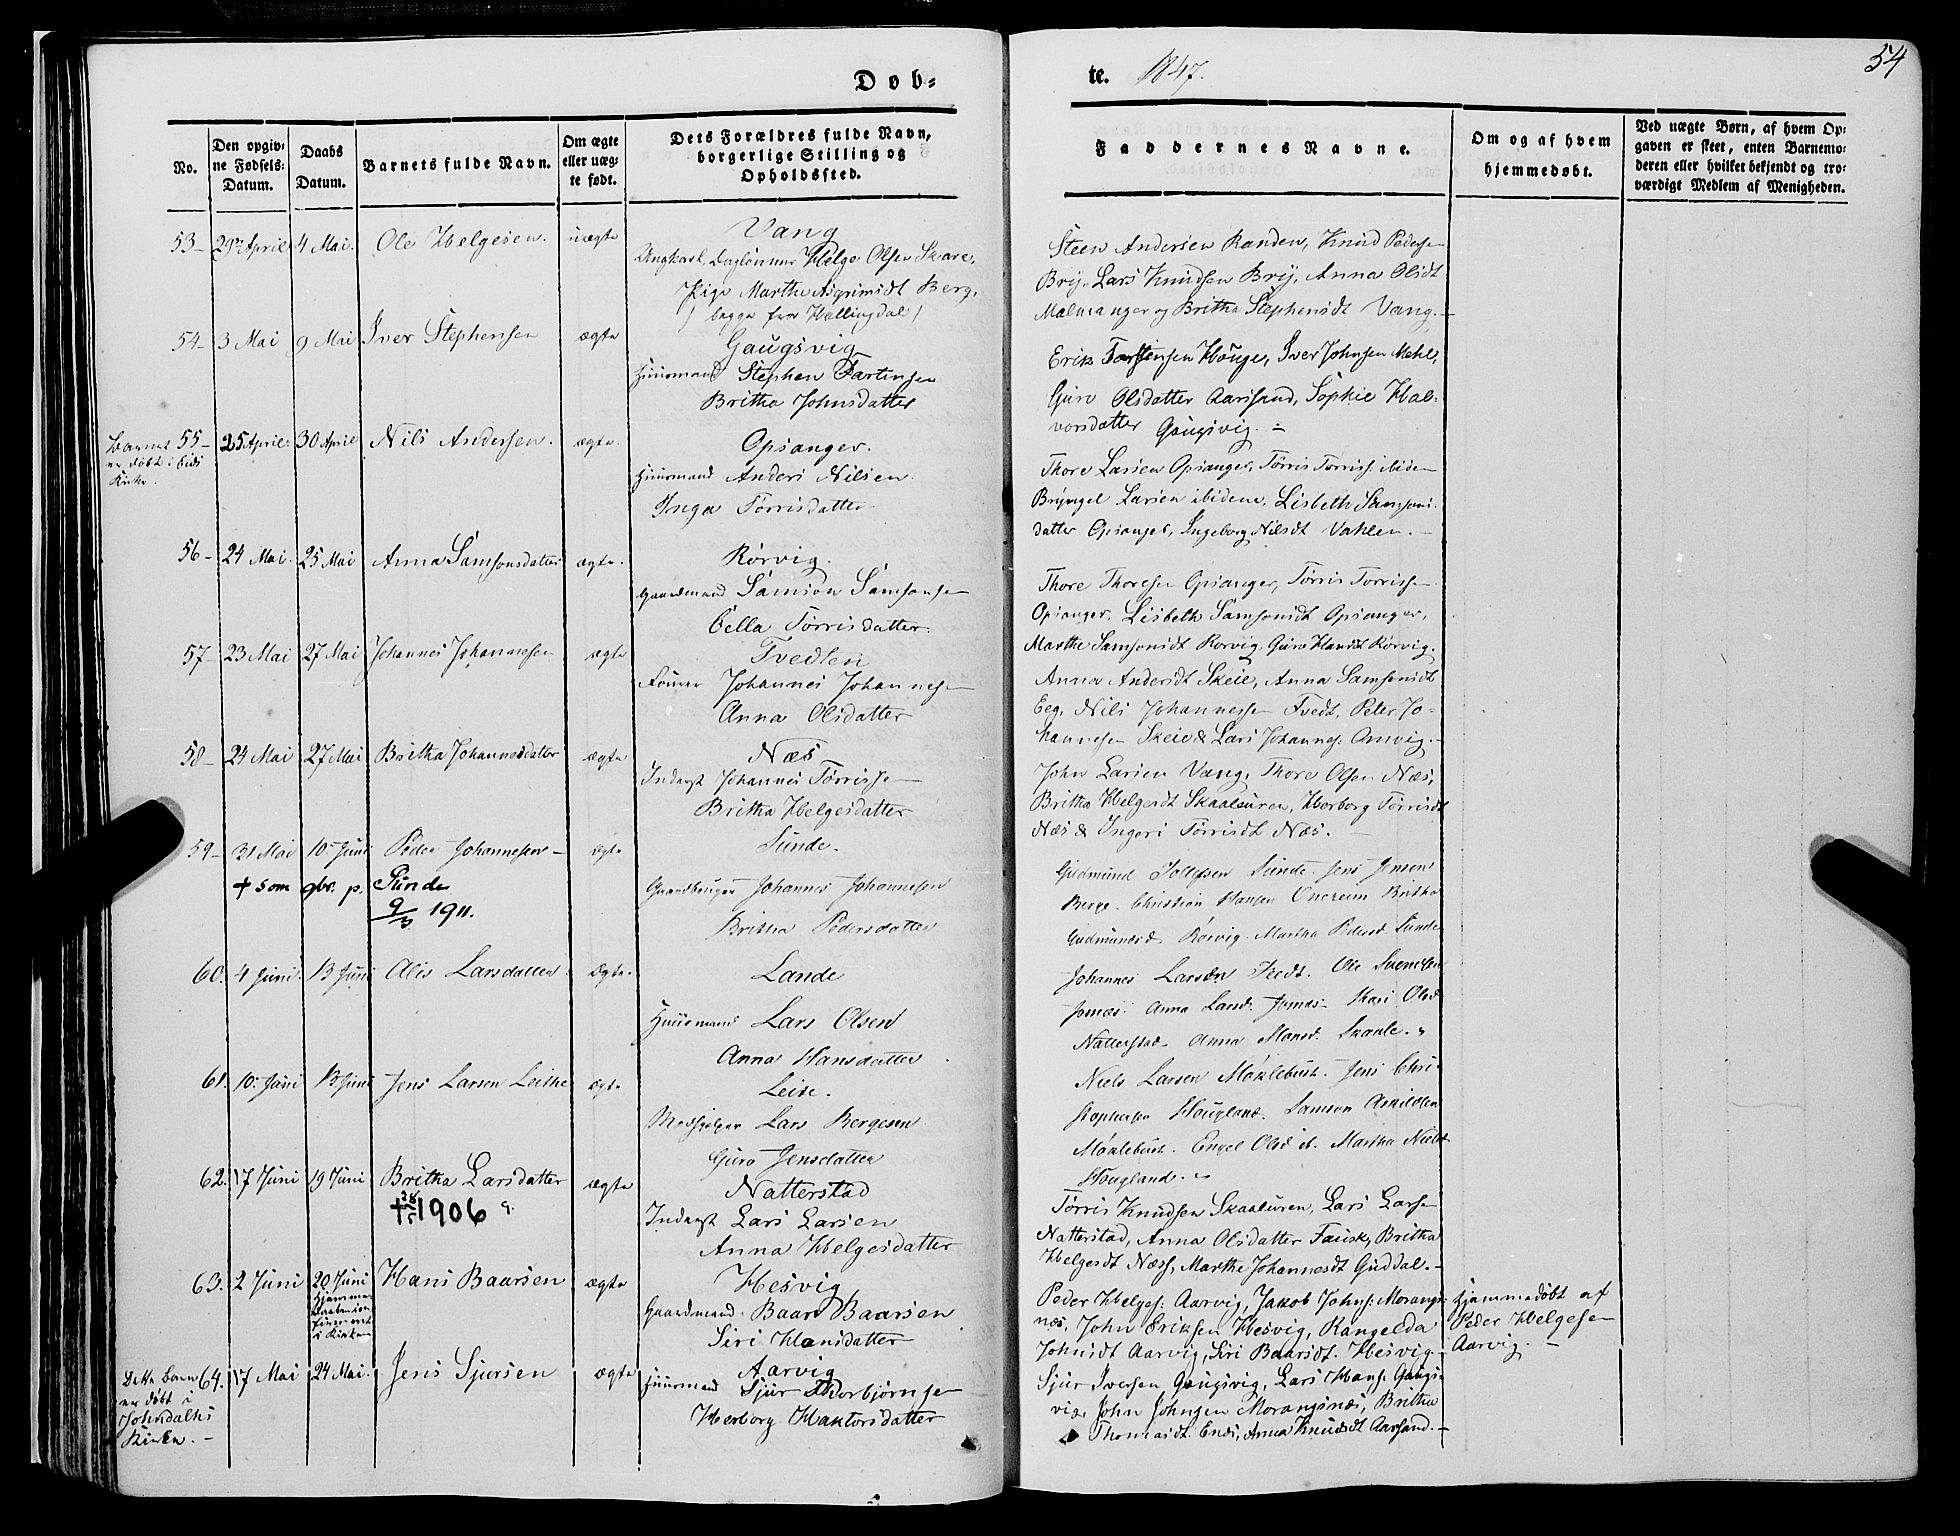 Dob=
te. 1847.
54
No.
Den opgiv=
ne Fødsels=
Datum.
Daabs
Datum.
Barnets fulde Navn.
Om ægte
eller uæg=
te født.
Dets Forældres fulde Navn,
borgerlige Stilling og
Opholdssted.
Faddernes Navne.
Om og af hvem
hjemmedøbt.
Ved uægte Børn, af hvem Op=
gaven er skeet, enten Barnemo=
deren eller hvilket bekjendt og tro=
værdigt Medlem af Menigheden.
53- 29de April 4 Mai. Ole Helgesen. uægte
Vang
Ungkarl Daglønner Helge Olsen Skare,
Pige Marthe Asgrimsdt Berg,
/ begge fra Hallingdal /
Steen Andersen Randen, Knud Pederse
Brÿ, Lars Knudsen Brÿ, Anna Olsdt
Malmanger og Britha Stephensdt Vang.-
54- 3 Mai 9 Mai Iver Stephensen ægte
Gaugsvig
Huusmand Stephen Tartensen
Britha Johnsdatter
Erik Torstensen Houge, Iver Johnsen Mehl,
Guro Olsdatter Aarsand, Sophie Hal-
vorsdatter Gaugsvig. -
Barnet
er døbt i Eids
Kirke.
55- 25 April 30 April Nils Andersen. ægte.
Opsanger.
Huusmand Anders Nilsen.
Inga Tørrisdatter
Thore Larsen Opsanger, Tørris Torriss: ibidem
Brÿngel Larsen ibidem, Lisbeth Samsons-
datter Opsanger, Ingeborg Nilsdt Vahlen. -
56- 24 Mai. 25 Mai Anna Samsonsdatter ægte.
Rørvig.
Gaardmand Samson Samsonsen
Cella Tørrisdatter.
Thore Thoresen Opsanger, Tørris Torrissen
Opsanger, Lisbeth Samsonsdt Opsanger,
Marthe Samsonsdt Rørvig, Guro Hansdt Rørvig.
57- 23 Mai 27 Mai Johannes Johannesen ægte
Tvedten
Johannes Johannesen
Anna Olsdatter
Anna Andersdt Skeie, Anna Samsonsdt
Eeg, Nils Johannessen Tvedt, Peter Jo-
hannesen Skeie & Lars Johannes: Omvig.-
58- 24 Mai 27 Mai Britha Johannesdatter ægte
Næs
Inderst Johannes Tørrissen
Britha Helgesdatter
John Larsen Vang, Thore Olsen Næs,
Britha Helgesdt Skaaluren, Herborg Tørrisdt
Næs & Ingeri Tørrisdt Næs.
59- 31 Mai 10 Juni Peder Johannesen - ægte
+ som gbr. p. Sunde
9/3 1911.
Sunde.
Gaardbruger Johannes Johannesen
Britha Pedersdatter
Gudmund Tollefsen Sunde. Jens Jensen
Berge. Christian Hansen Onereim Britha
Gudmundsd. Rørvig. Martha Pedersd. Sunde
60. 4 Juni. 13 Juni Alis Larsdatter ægte.
Lande
Huusmand Lars Olsen
Anna Hansdatter
Johannes Larsen Tvedt. Ole Svendsen
Jonæs. Anna Larsd. Jonæs. Kari Olsd.
Natterstad. Anna Monsd. Skaale. "
61. 10. Juni 13 Juni Jens Larsen Leithe ægte
Leite.
Medhjelper Lars Bergesen
Guro Jensdatter
Niels Larsen Møklebust. Jens Chri-
stophersen Hougland. Samson Askildsen
Møklebust. Engel Olsd. ib. Martha Nielsd.
Hougland.
62. 17 Juni 19 Juni Britha Larsdatter ægte
+ 1906
Natterstad
Inderst Lars Larsen
Anna Helgesdatter
Tørris Knudsen Skaaluren, Lars Larsen
Natterstad, Anna Olsdatter Fausk, Britha
Helgesdt Næss, Marthe Johannesdt Guddal.-
63. 2 Juni 20 Juni Hans Baarsen ægte
Hjemme
Daaben con
firmeret
i Kirken
Hesvig
Gaardmand Baar Baarsen
Siri Hansdatter
Peder Helges: Aarvig, Jakob Johns: Morangs-
næs, John Eriksen Hesvig, Rangelda
Johnsdt Aarvig, Siri Baarsdt. Hesvig.-
Hjemmedøbt af
Peder Helgesen
Aarvig. -
Dette barn
er døbt i
Jondalhs
Kirke. -
64. 17 Mai 24 Mai. Jens Sjursen ægte
Aarvig
Huusmand Sjur Thorbjørnsen
Herborg Haktorsdatter
Sjur Iversen Gaugsvig, Lars Hans: Gaugs-
vig, John Johnsen Morangsnæs, Britha
Thomasdt. Enæs, Anna Knudsdt Aarsand.-